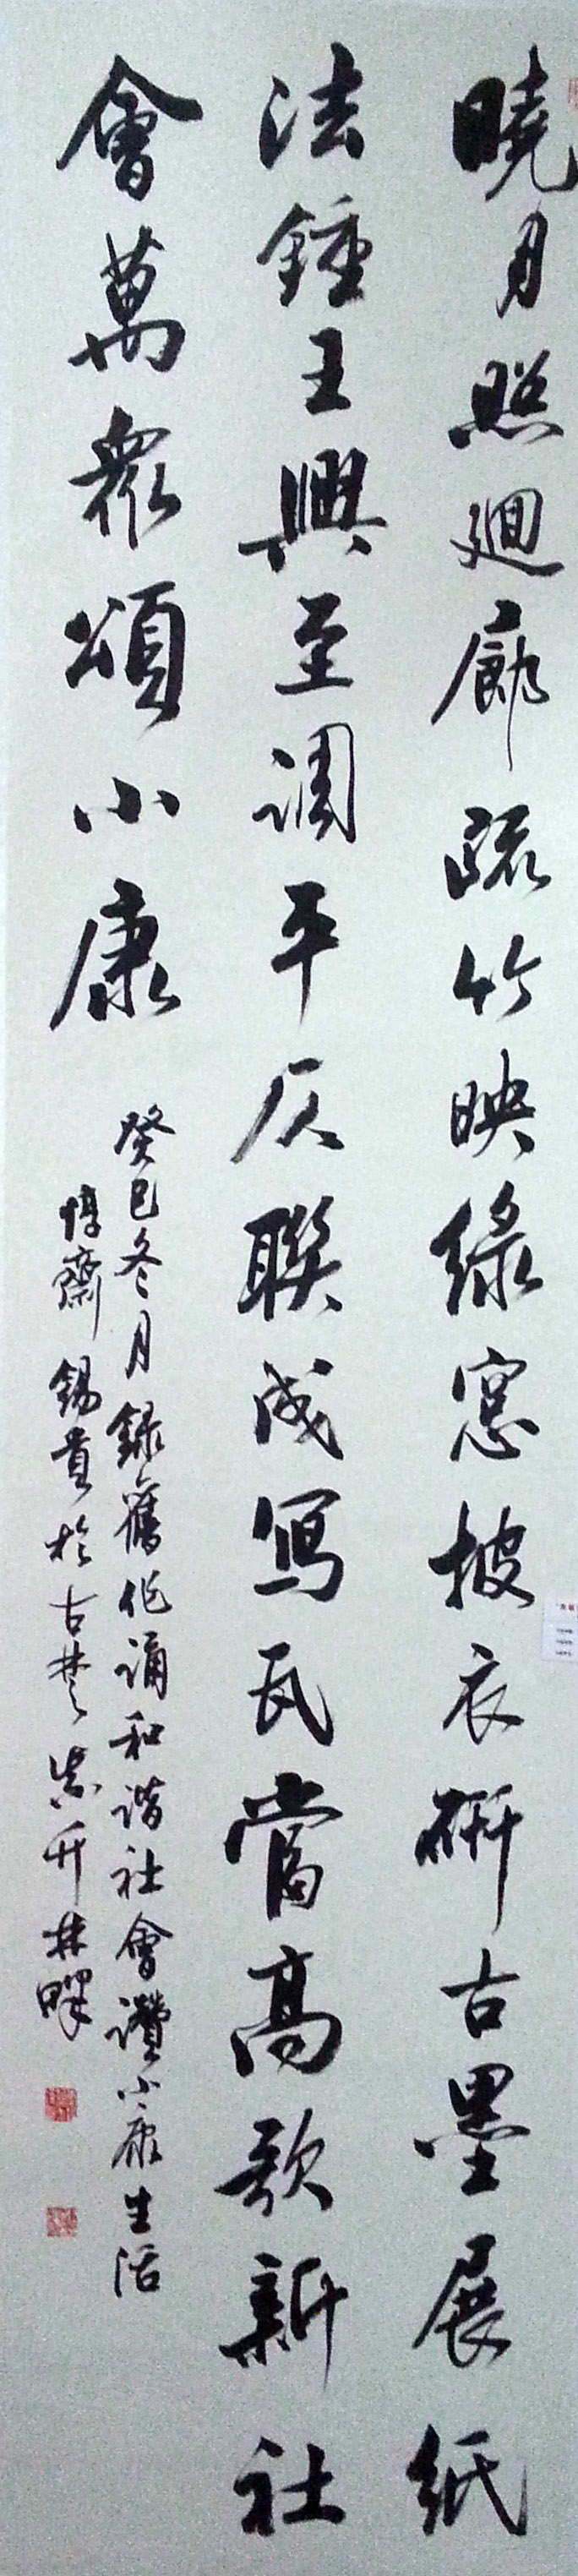 曉月照廻廊疏竹映綠窓披衣研古墨展紙
法鍾王興至調平仄聯成寫瓦當高歌新社
會萬衆頌小康
癸巳冬月錄舊作誦和諧社會讚小康生活
惇齋錫貴於古楚